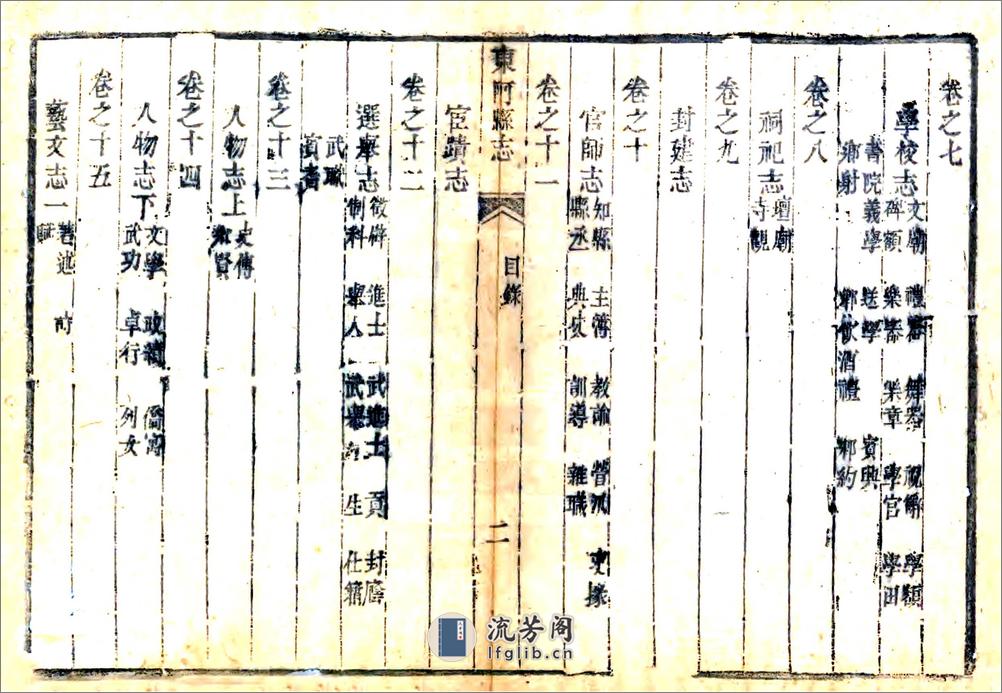 卷之七
學校志 文廟 禮器 舞器 祝 學額
碑額 樂器 樂章 學官 學田
書院 義學 送學 賓興
鄉射 鄉飲酒禮 鄉約
卷之八
祠祀志 壇廟
寺觀
卷之九
封建志
卷之十
官師志 知縣 主簿 教諭 營汛 吏掾
縣丞 典史 訓導 雜職
卷之十一
宦蹟志
東阿縣志
目錄
二
卷之十二
選舉志 徵辟 進士 武進士 貢 封廕
制科 舉人 武舉 生 仕籍
武職
卷之十三
人物志上 史傳
鄉賢
卷之十四
人物志下 文學 政績 僑寓
武功 卓行 列女
卷之十五
藝文志一 著述 詩
賦
流芳阁
lfglib.cn